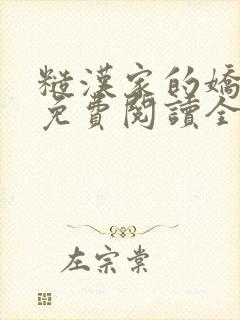 糙漢家的嬌
免費閱讀全
左宗棠